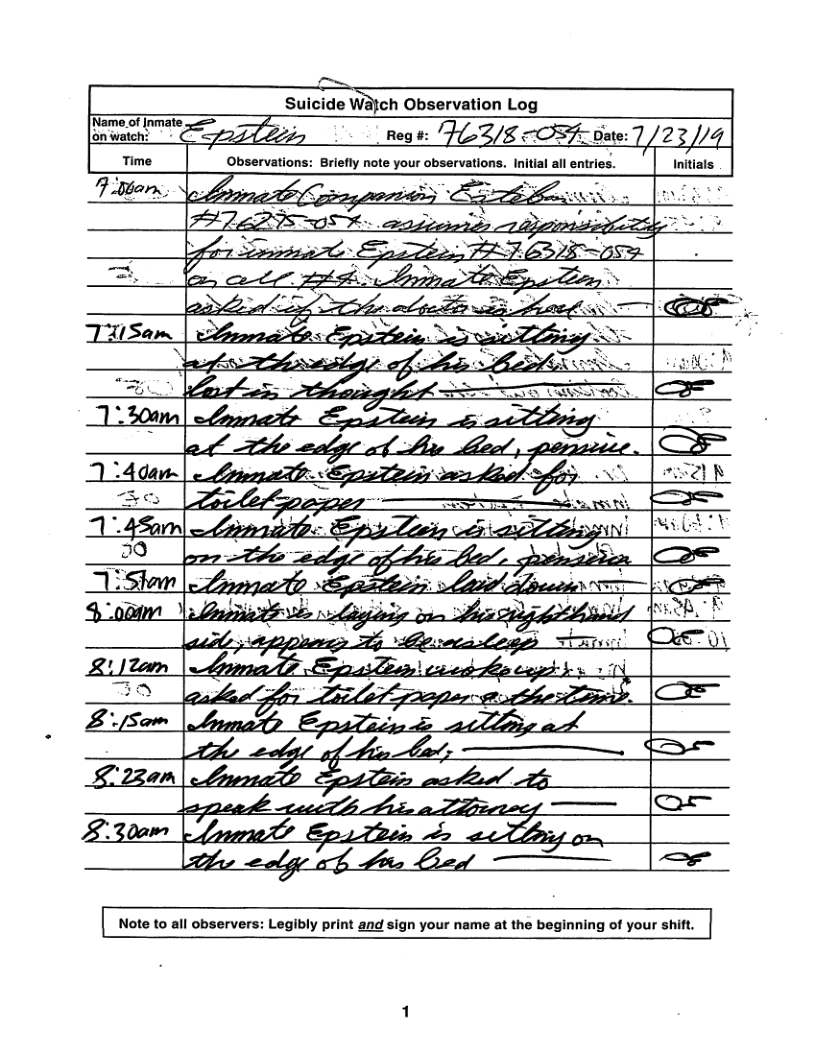 Suicide Watch Observation Log
Name of Inmate on watch: Epstein Reg #: 76318-054 Date: 7/23/19
Time Observations: Briefly note your observations. Initial all entries. Initials
7:00am Inmate Companion Esteban
#76275-054 assumes responsibility
for inmate Epstein #76318-054
on cell #4. Inmate Epstein
asked if the doctor is here
7:15am Inmate Epstein is sitting
at the edge of his bed
lost in thought
7:30am Inmate Epstein is sitting
at the edge of his bed, pensive.
7:40am Inmate Epstein asked for
toilet paper
7:45am Inmate Epstein is sitting
on the edge of his bed,
7:51am Inmate Epstein laid down
8:00am Inmate is laying on his right hand
side, appears to be asleep
8:12am Inmate Epstein woke up
asked for toilet-paper a the time.
8:15am Inmate Epstein is sitting at
the edge of his bed;
8:23am Inmate Epstein asked to
speak with his attorney
8:30am Inmate Epstein is sitting on
the edge of has bed
Note to all observers: Legibly print and sign your name at the beginning of your shift.
1